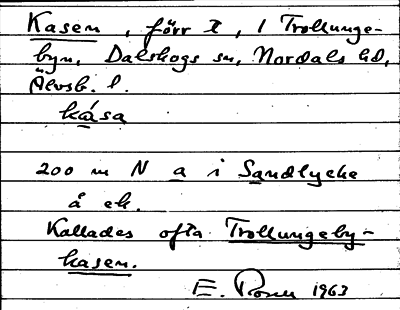 Kasen, förr t, i Trollunge-
byn, Dalskogs sn, Nordals hd,
Älvsb. l.
kása
200 m N a i Sandlycke
å ek.
Kallades ofta Trollungeby-
kasen.
E. 1963